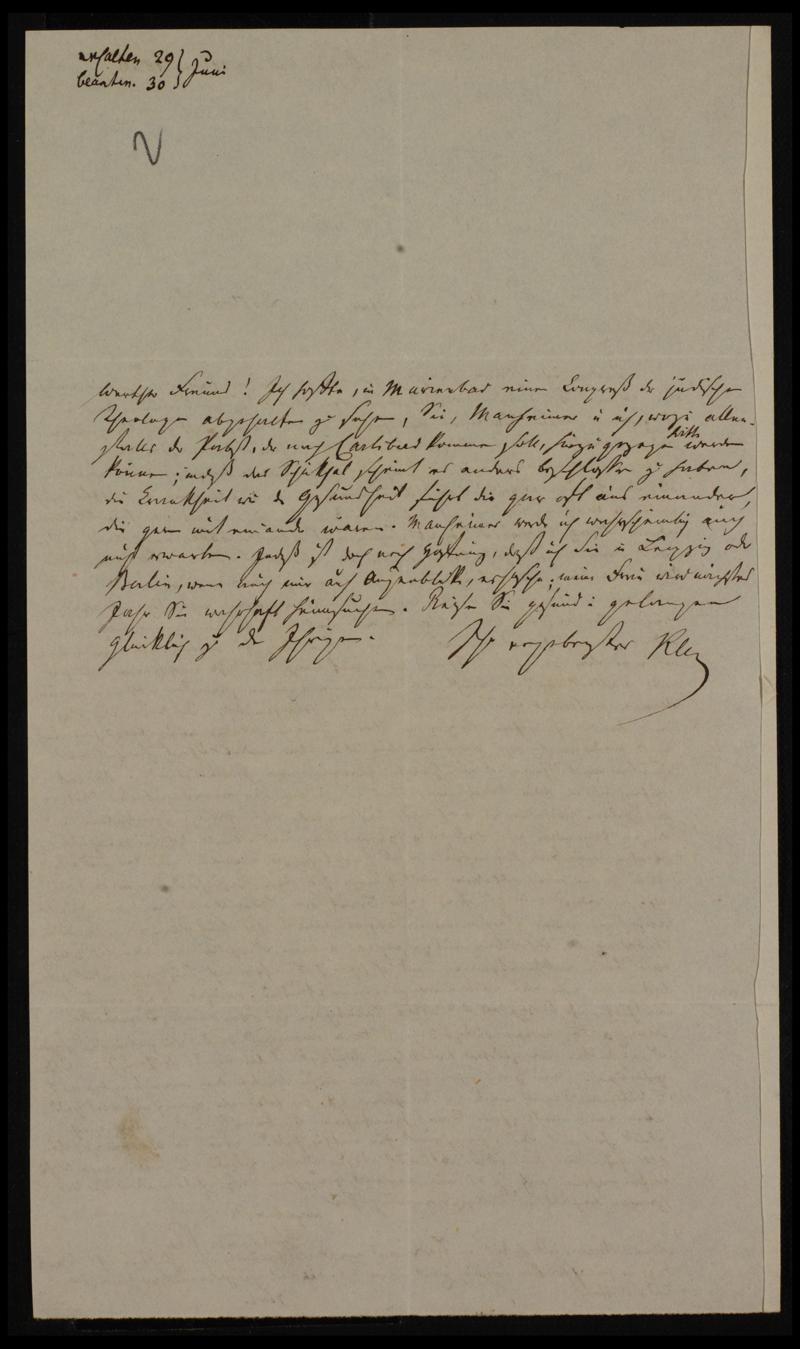 erhalten 29 } Juni
beantw. 30 }
2
Werther Freund! Ich hoffte, in Marienbad einen Congreß der jüdischen
Theologen abgehalten zu sehen, Sie, Manheimer u ich, wozu allen-
falls der Pabst, der nach Carlsbad kommen soll, hinzugezogen hätte werden
können; indeß das Schiksal scheint es anders beschlossen zu haben,
die Krankheit wie die Gesundheit führt die gar oft aus einander,
die gern mit einander wären. Manheimer werde ich wahrscheinlich auch
nicht erwarten. Indeß ist doch noch Hoffnung, daß ich Sie in Leipzig oder
Berlin, wenn auch nur auf Augenblicke, erhasche; meine Frau wird nächstes
Jahr Sie wahrhaft heimsuchen. Reisen Sie gesund u gelangen
glücklich zu den Ihrigen. Ihr ergebenster Kley